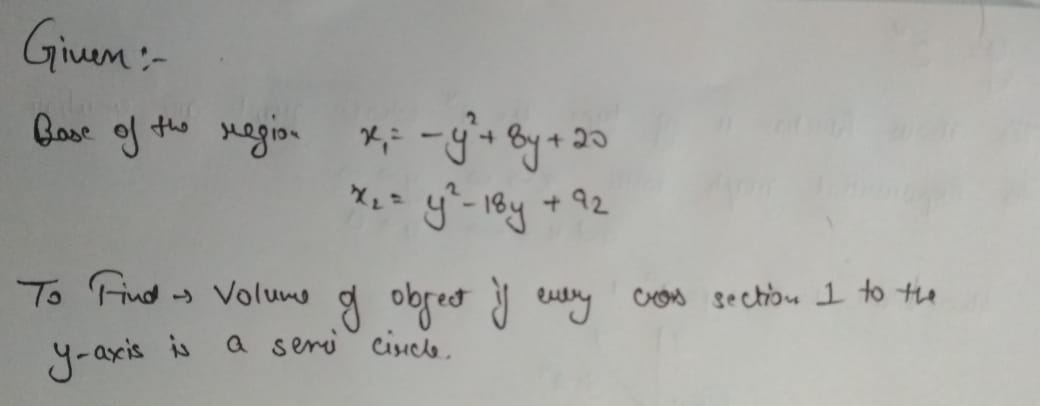 Given :-
Base of the region x₁ = -y² + 8y + 20
x₂ = y² - 18y + 92
To Find → Volume of object if every cross section ⊥ to the
y-axis is a semi circle.